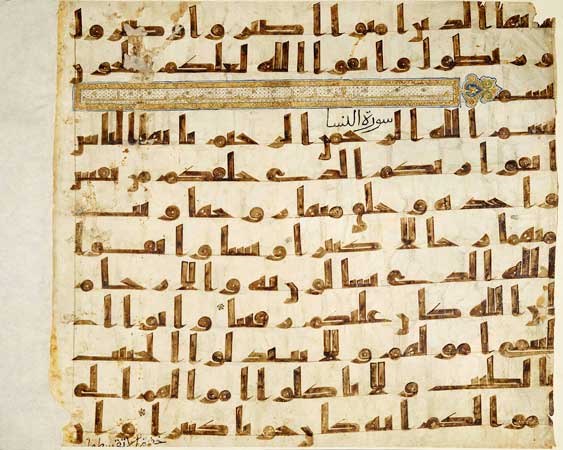 يايها الذين امنوا اصبروا وصبروا
وربطوا واتقوا الله لعلكم تفلحون
سورة النسا
بسم الله الرحمن الرحيم يايها الناس
اتقوا ربكم الذي خلقكم من نفس
وحده وخلق منها زوجها وبث
منهما رجالا كثيرا ونسا واتقوا
الله الذي تسالون به والارحام
ان الله كان عليكم رقيبا واتوا ا
ليتمى امولهم ولا تتبدلوا الخبيث
بالطيب ولا تاكلوا امولهم الى
امولكم انه كان حوبا كبيرا وان